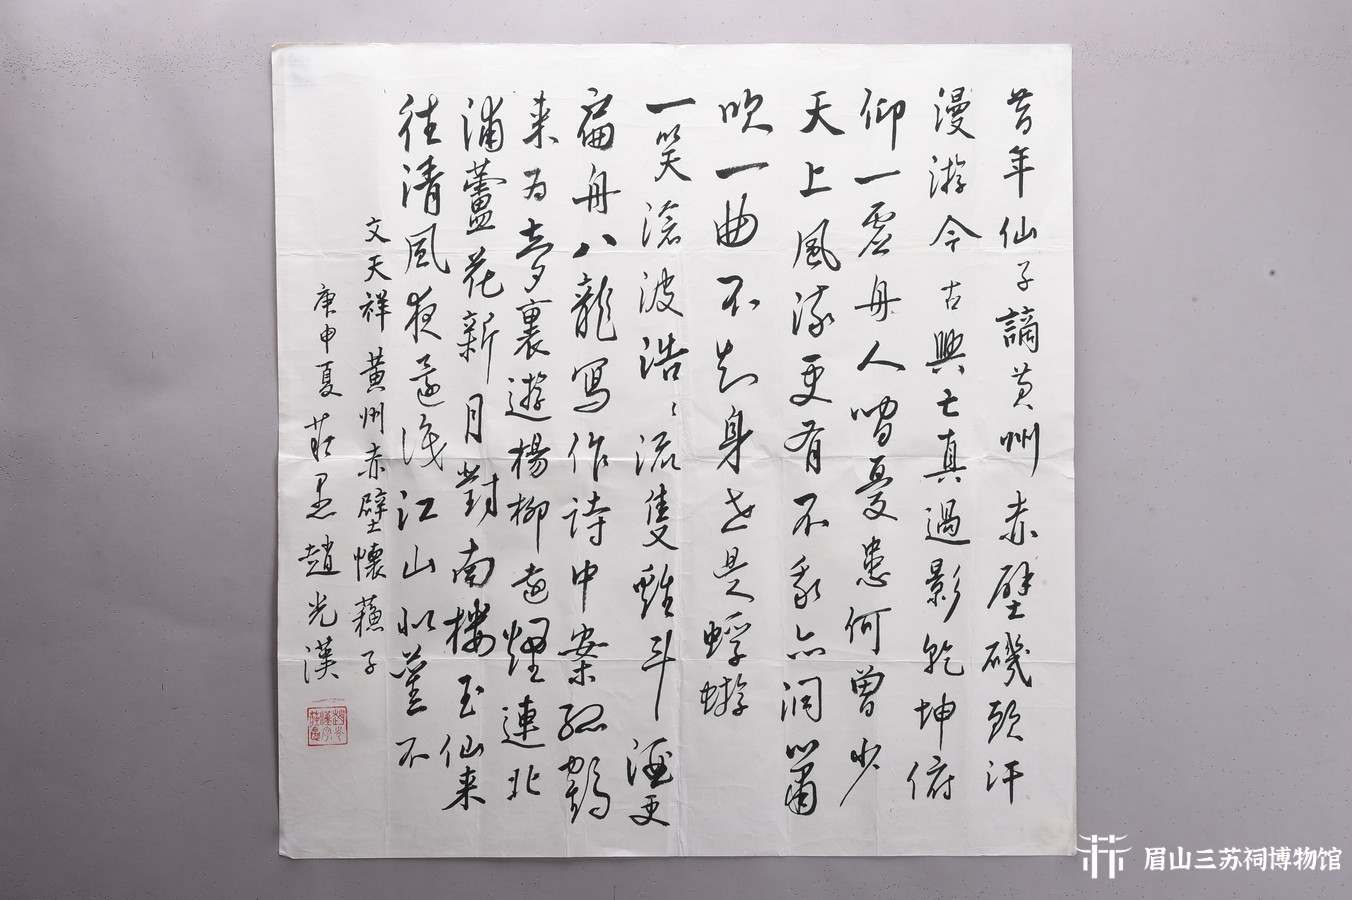 昔年仙子謫黄州赤壁磯頭汗
漫游今古興亡真過影乾坤俯
仰一虚舟人間憂患何曾少
天上風流更有不我亦洞簫
吹一曲不知身世是蜉蝣
一笑滄波浩〻流隻雞斗酒更
扁舟八龍寫作詩中案孤鶴
来為夢裏遊楊柳遠煙連北
浦蘆花新月對南樓玉仙来
往清風夜還識江山似舊不
文天祥黄州赤壁懷蘇子
庚申夏莊愚趙光漢
眉山三苏祠博物馆